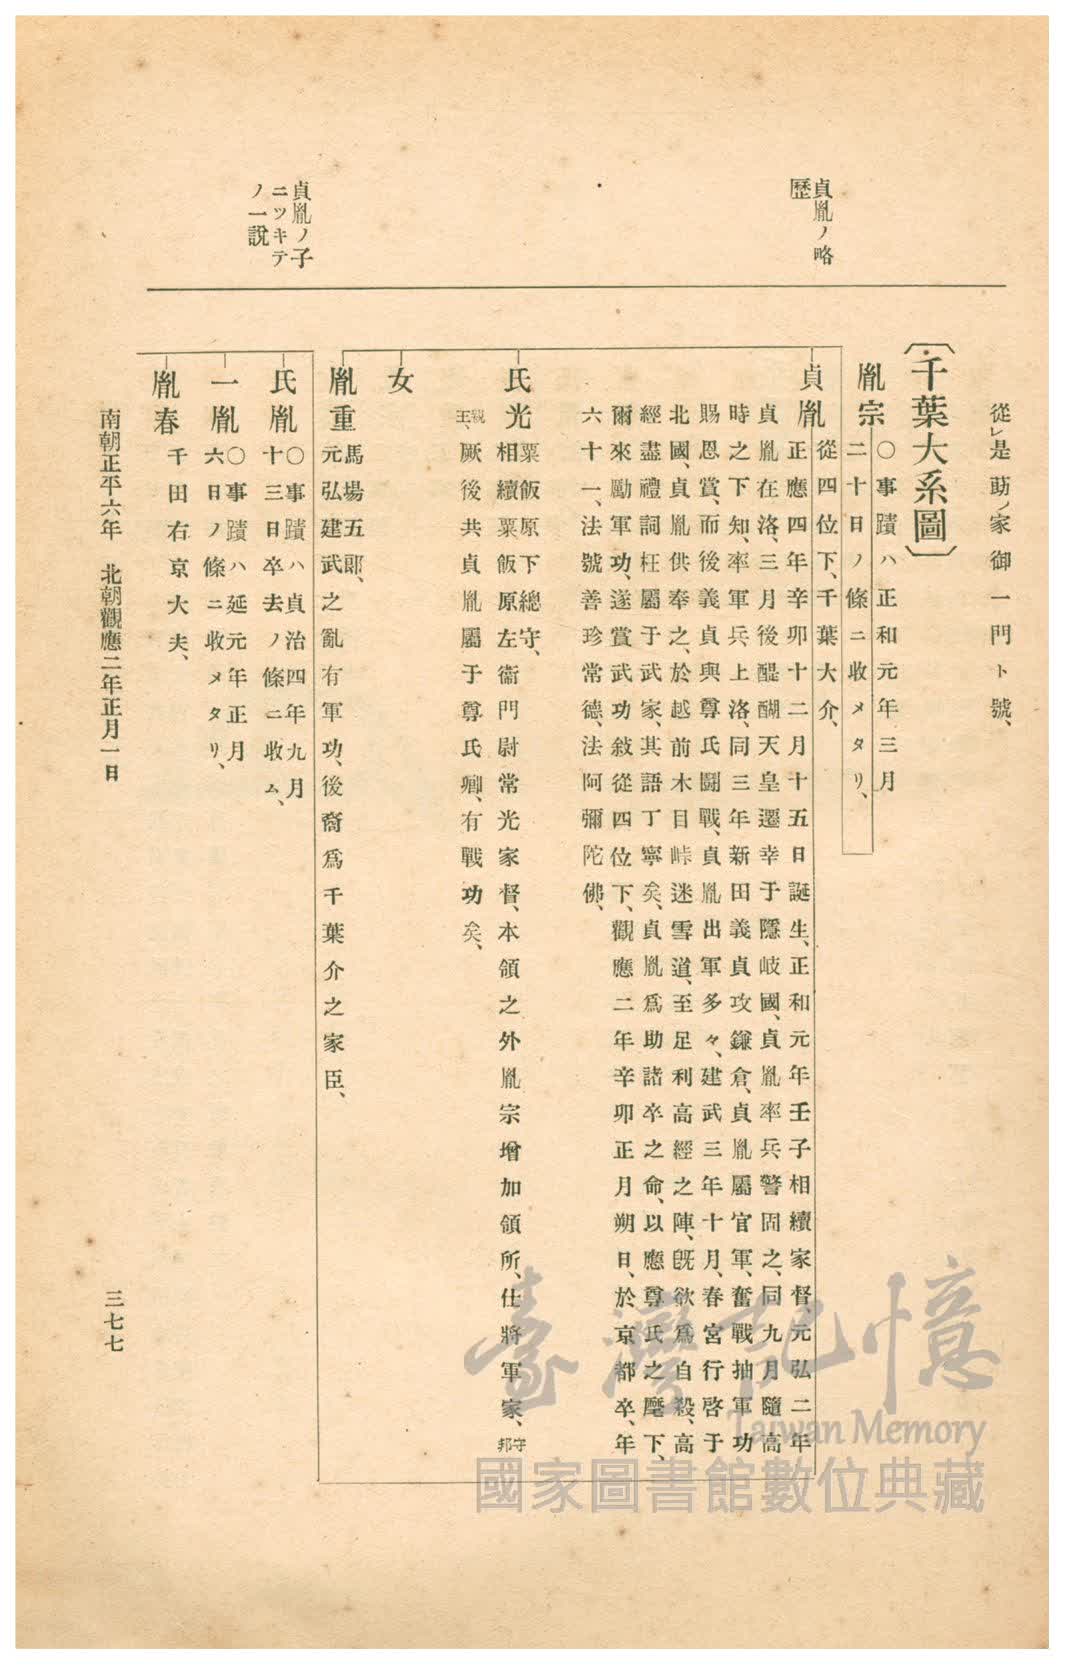 從レ是動ソ家御一門ト號、
〔千葉大系圖〕
貞胤ノ略
歷
胤宗
〇事蹟ハ正和元年三月
二十日ノ條ニ收メタリ、
貞胤
從四位下、千葉大介、
正應四年辛卯十二月十五日誕生、正和元年壬子相續家督、元弘二年
貞胤在洛、三月後醍醐天皇遷幸于隱岐國、貞胤率兵警固之、同九月隨高
時之下知、率軍兵、上洛、同三年新田義貞攻鎌倉、貞胤屬官軍、奮戰抽軍功
賜恩賞、而後義貞與尊氏鬪戰、貞胤出軍多々、建武三年十月、春宮行啓于
北國、貞胤供奉之、於越前木目峠迷雪道、至足利高經之陣、旣欲爲自殺、高
經盡禮詞枉屬于武家、其語丁寧矣、貞胤爲助諸卒之命、以應尊氏之麾下、
爾來勵軍功、遂賞武功敍從四位下、觀應二年辛卯正月朔日、於京都卒、年
六十一、法號善珍常德、法阿彌陀佛、
氏光
粟飯原下總守、
相續粟飯原左衞門尉常光家督、本領之外胤宗增加領所、仕將軍家、守邦
親王、厥後共貞胤屬于尊氏卿、有戰功矣、
女
胤重
馬場五郎、
元弘建武之亂有軍功、後裔爲千葉介之家臣、
貞胤ノ子
ニツキテ
ノ一說
氏胤
〇事蹟ハ貞治四年九月
十三日卒去ノ條ニ收ム、
一胤
〇事蹟ハ延元年正月
六日ノ條ニ收メタリ、
胤春
千田右京大夫、
南朝正平六年 北朝觀應二年正月一日
三七七
臺灣記憶
Taiwan Memory
國家圖書館數位典藏